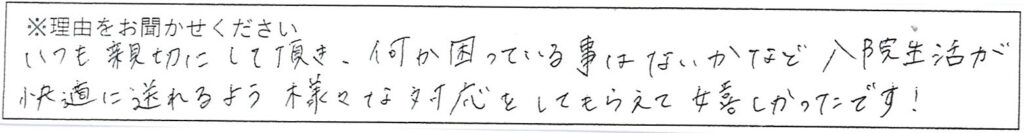 ※理由をお聞かせください
いつも親切にして頂き、何か困っている事はないかなど入院生活が
快適に送れるよう様々な対応をしてもらえて嬉しかったです!